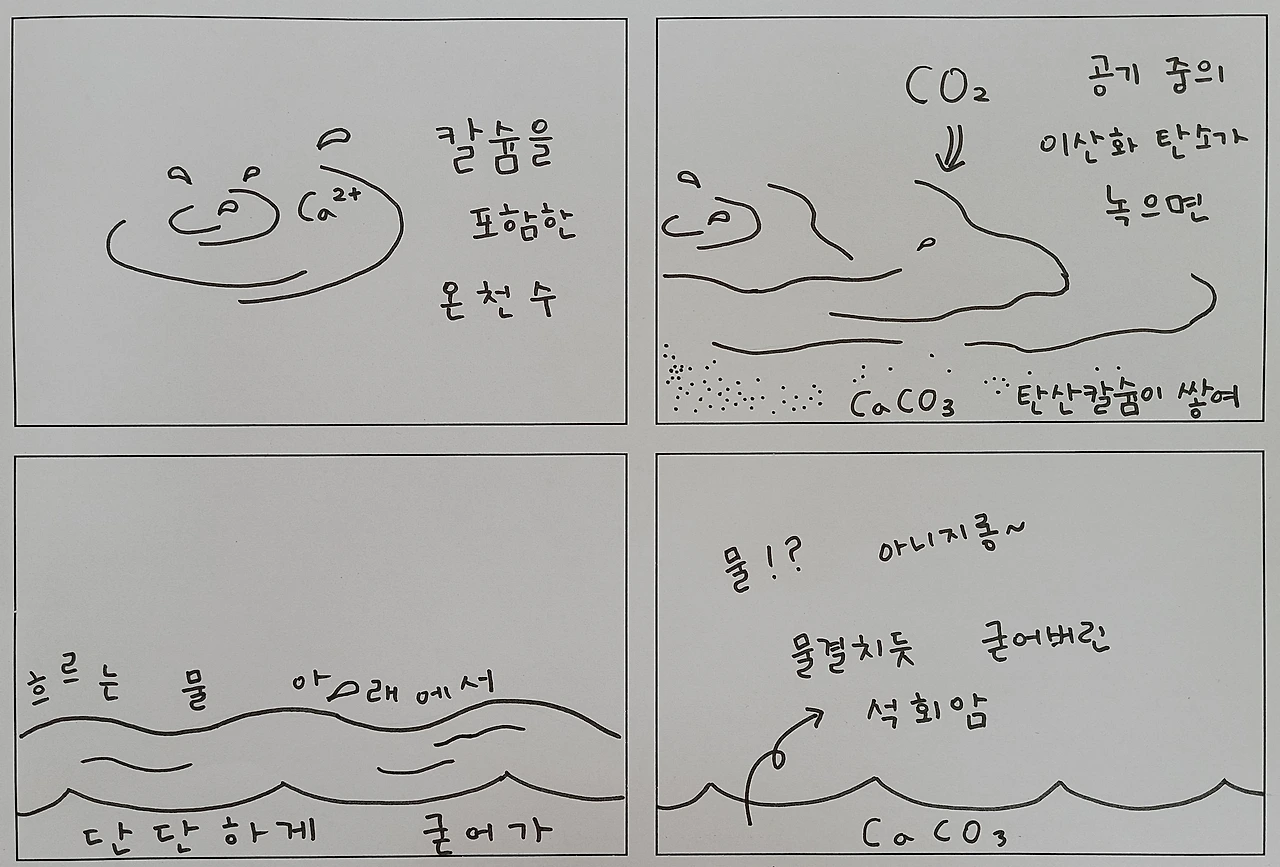 Ca²⁺
칼슘을
포함한
온천수
CO₂
공기 중의
이산화 탄소가
녹으면
CaCO₃
탄산칼슘이 쌓여
흐르는 물 아래에서
단단하게 굳어가
물!? 아니지롱~
물결치듯 굳어버린
석회암
CaCO₃